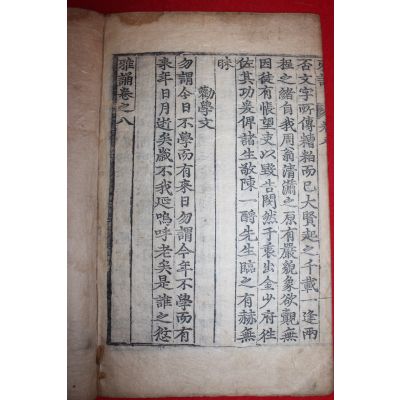 否文字所傳糟粕而已大賢起之千載一逢兩
程之緒自我周翁清濂之原有嚴貌象欲觀無
因徒有悵望吏以毀告閔然于衷出金少府往
佐其功爰俾諸生敬陳一酹先生臨之有赫無
昧
勸學文
勿謂今日不學而有來日勿謂今年不學而有
來年日月逝矣歲不我延嗚呼老矣是誰之愆
雅誦卷之八